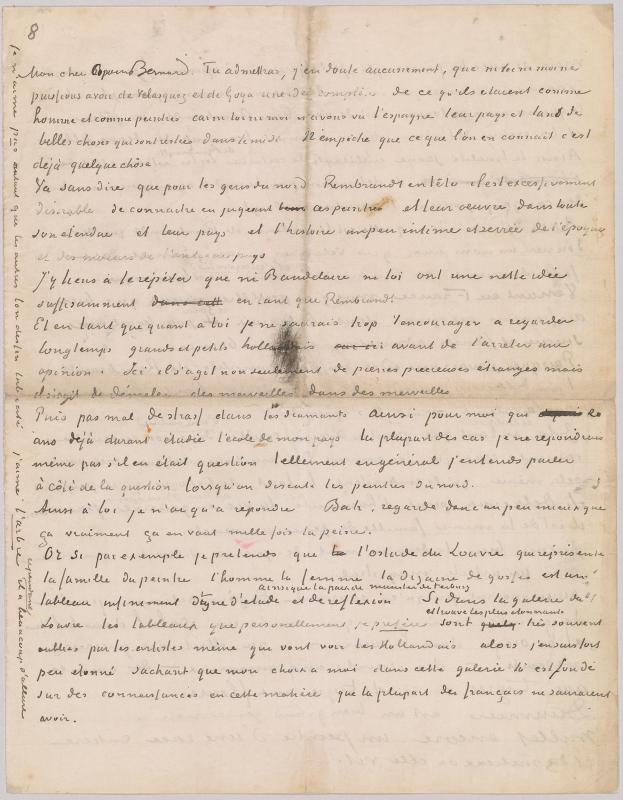 8
Mon cher copain Bernard. Tu admettras, j'en doute aucunement, que ni toi ni moi ne
puissions avoir de Velasquez et de Goya une idée complète de ce qu'ils étaient comme
homme et comme peintres car ni toi ni moi n'avons vu l'espagne leur pays et tant de
belles choses qui sont restées dans le midi N'empêche que ce que l'on en connait c'est
déjà quelque chôse
Va sans dire que pour les gens du nord Rembrandt en tête il est excessivement
désirable de connaitre en jugeant ces peintres et leur oeuvre dans toute
son etendue et leur pays et l'histoire un peu intime et serrée de l'époque
et des moeurs de l'antique pays
J'y tiens à te répéter que ni Baudelaire ni toi ont une nette idée
suffisamment en tant que Rembrandt
Et en tant que quant à toi je ne saurais trop t'encourager a regarder
longtemps grands et petits hollandais avant de t'arreter une
opinion. Ici il s'agit non seulement de pierres precieuses étranges mais
il s'agit de démeler des merveilles dans des merveilles
Puis pas mal de strass dans les diamants ainsi pour moi qui 20
ans déjà durant étudie l'école de mon pays la plupart des cas je ne repondrais
même pas s'il en était question tellement en général j'entends parler
à côté de la question lorsqu'on discute les peintres du nord.
Ainsi à toi je n'ai qu'a répondre Bah, regarde donc un peu mieux que
ça vraiment ça en vaut mille fois la peine.
Or si par exemple je pretends que l'ostade du Louvre qui représente
la famille du peintre l'homme la femme la dizaine de gosses est un
ainsi que la paix de munster de Terburg
tableau infiniment digne d'étude et de reflexion Si dans la galerie du
et trouve les plus etonnants
Louvre les tableaux que personellement je prefère sont très souvent
oubliés par les artistes même qui vont voir les Hollandais alors j'en suis fort
peu étonné sachant que mon choix a moi dans cette galerie là est fondé
sur des connaissances en cette matière que la plupart des français ne sauraient
avoir.
je n'aime pas autant que les autres ton dessin lubricité j'aime l'arbre cependant il a beaucoup d'allure